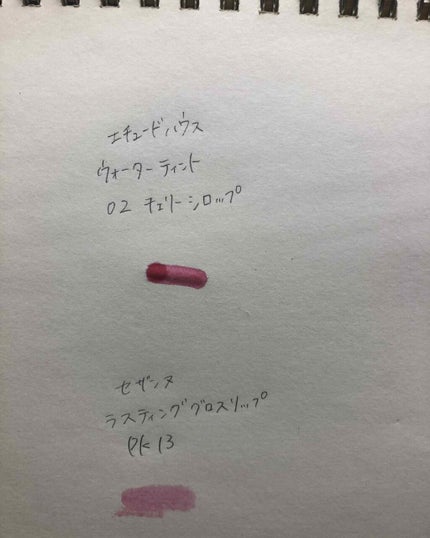 エチュードハウス
ウォーターティント
02 チェリーシロップ
セザンヌ
ラスティンググロスリップ
PK13